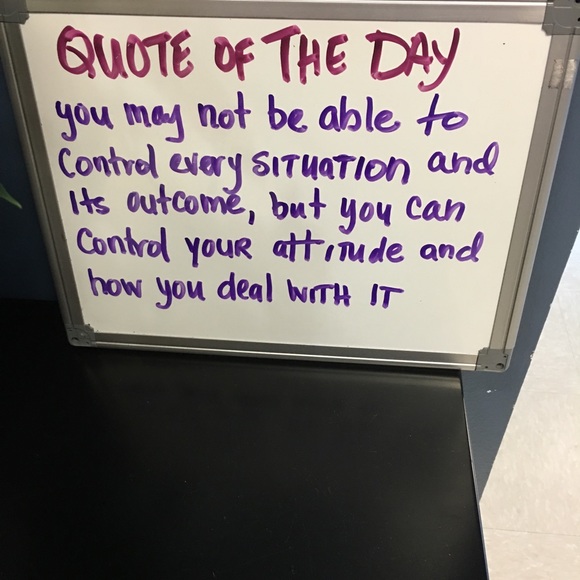 QUOTE OF THE DAY
you may not be able to
Control every SITUATION and
Its outcome, but you can
Control YOUR attitude and
how you deal WITH IT